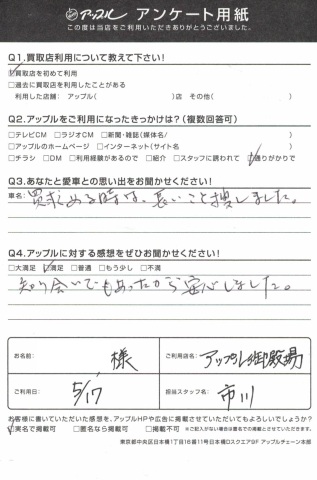 アップル アンケート用紙
この度は当店をご利用いただきありがとうございました。
Q1.買取店利用について教えて下さい!
☑買取店を初めて利用
□過去に買取店を利用したことがある
利用した店舗: アップル( )店 その他( )
Q2.アップルをご利用になったきっかけは?(複数回答可)
□テレビCM □ラジオCM □新聞・雑誌(媒体名/ )
□アップルのホームページ □インターネット(サイト名 )
□チラシ □DM □利用経験があるので □紹介 □スタッフに誘われて ☑通りがかりで
Q3.あなたと愛車との思い出をお聞かせください!
車名: 買求める時は、長いこと捜しました。
Q4.アップルに対する感想をぜひお聞かせください!
□大満足 ☑満足 □普通 □もう少し □不満
知り合いでもあったから安心しました。
お名前: 様
ご利用店名: アップル御殿場
ご利用日: 5/17
担当スタッフ名: 市川
お客様に書いていただいた感想を、アップルHPや広告に掲載させていただいてもよろしいでしょうか?
☑実名で掲載可 □匿名なら掲載可 □掲載不可 ※ご記入がない場合は匿名での掲載とさせていただきます。
東京都中央区日本橋1丁目16番11号日本橋Dスクエア9F アップルチェーン本部